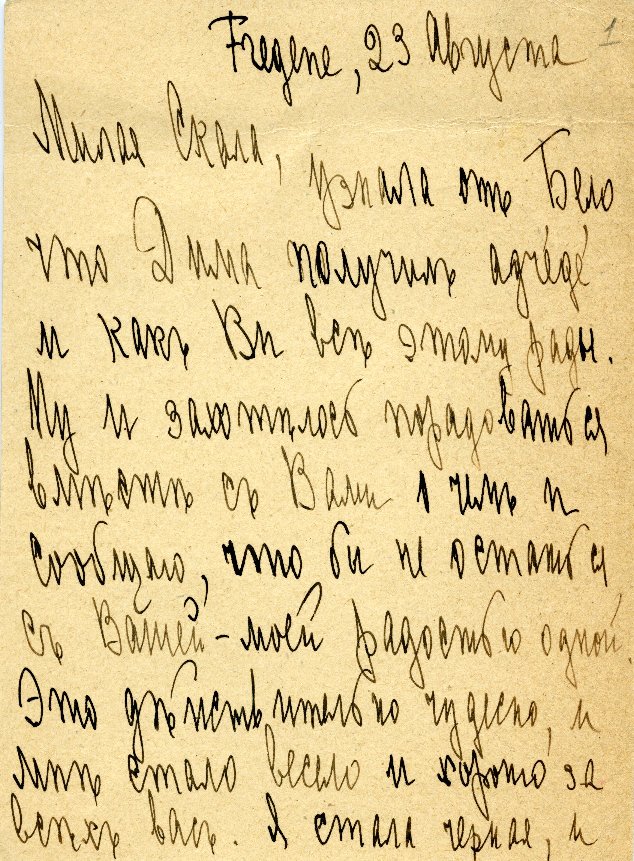 1
Fregene, 23 Августа
Милая Скала,
узнала отъ Бело
что Дима получилъ
и какъ Ви всѣ этому рады.
Ну и захотѣлось порадоваться
вмѣстѣ съ Вами о чемъ и
сообщаю, что би не остаться
съ Вашей-моей радостью одной.
Это дѣйствительно чудесно, и
мнѣ стало весело и хорошо за
всѣхъ васъ. Я стала черная, и